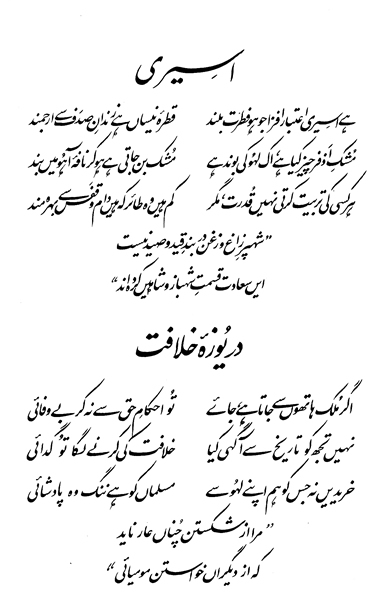 اسیری
ہے اسیری اعتبار افزا جو ہو فطرت بلند قطرۂ نیساں ہے زندانِ صدف سے ارجمند
مُشکِ اذفر چیز کیا ہے اک لہو کی بوند ہے مُشک بن جاتی ہے ہو کر نافۂ آہو میں بند
ہر کسی کی تربیت کرتی نہیں قدرت مگر کم ہیں وہ طائر کہ ہیں دام و قفس سے بہرہ مند
”شہپرِ زاغ و زغن در بندِ قید و صید نیست
ایں سعادت قسمتِ شہباز و شاہیں کردہ اند“
دریوزۂ خلافت
اگر مُلک ہاتھوں سے جاتا ہے جائے تُو احکامِ حق سے نہ کر بے وفائی
نہیں تجھ کو تاریخ سے آگہی کیا خلافت کی کرنے لگا تُو گدائی
خریدیں نہ جس کو ہم اپنے لہو سے مسلماں کو ہے ننگ وہ پادشائی
”مرا از شکستن چُناں عار ناید
کہ از دیگراں خواستن مومیائی“